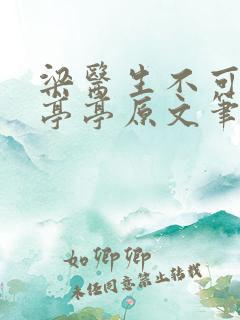 梁医生不可
亭亭原文笔
如卿卿
未经同意禁止转载